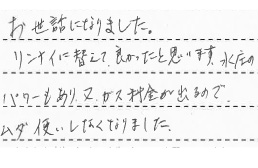 お世話になりました。
リンナイに替えて良かったと思います。水圧の
パワーもあり、又、ガス料金が出るので、
ムダ使いしなくなりました。